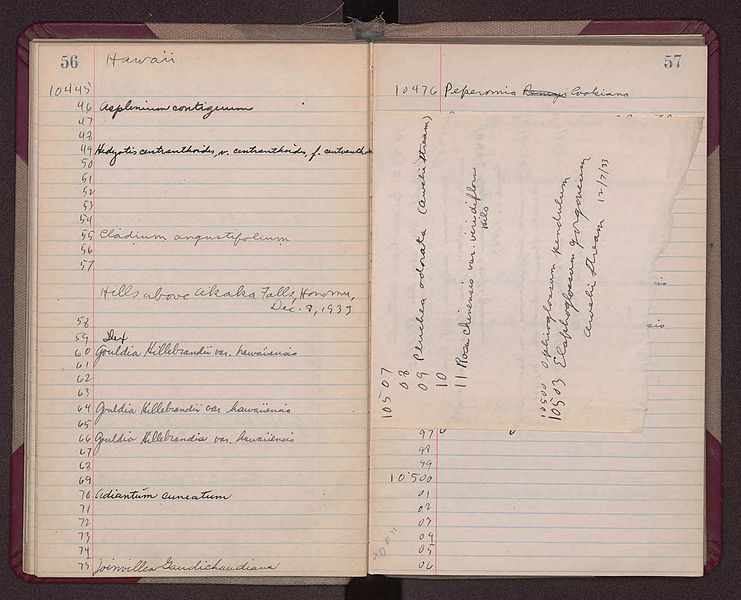 56 Hawaii
10445
46 Asplenium contiguum
47
48
49 Hedyotis centranthoides, v. centranthoides, f. centranthoides
50
51
52
53
54
55 Cladium angustifolium
56
57
Hills above Akaka Falls, Honomu,
Dec. 9, 1933
58
59
60 Gouldia Hillebrandii var. hawaiiensis
61
62
63
64 Gouldia Hillebrandii var hawaiiensis
65
66 Gouldia Hillebrandia var. hawaiiensis
67
68
69
70 Adiantum cuneatum
71
72
73
74
75 Joinvillea Gaudichaudiana
57
10476 Peperomia Cookiana
10507
08
09 Pluchea odorata (Awehi stream)
10
11 Rosa chinensis var. viridiflora
Hilo
10500 Ophioglossum pendulum
10503 Elaphoglossum gorgoneum
Awehi stream 12/7/33
sis
sis
97
98
99
10500
01
02
03
04
05
06